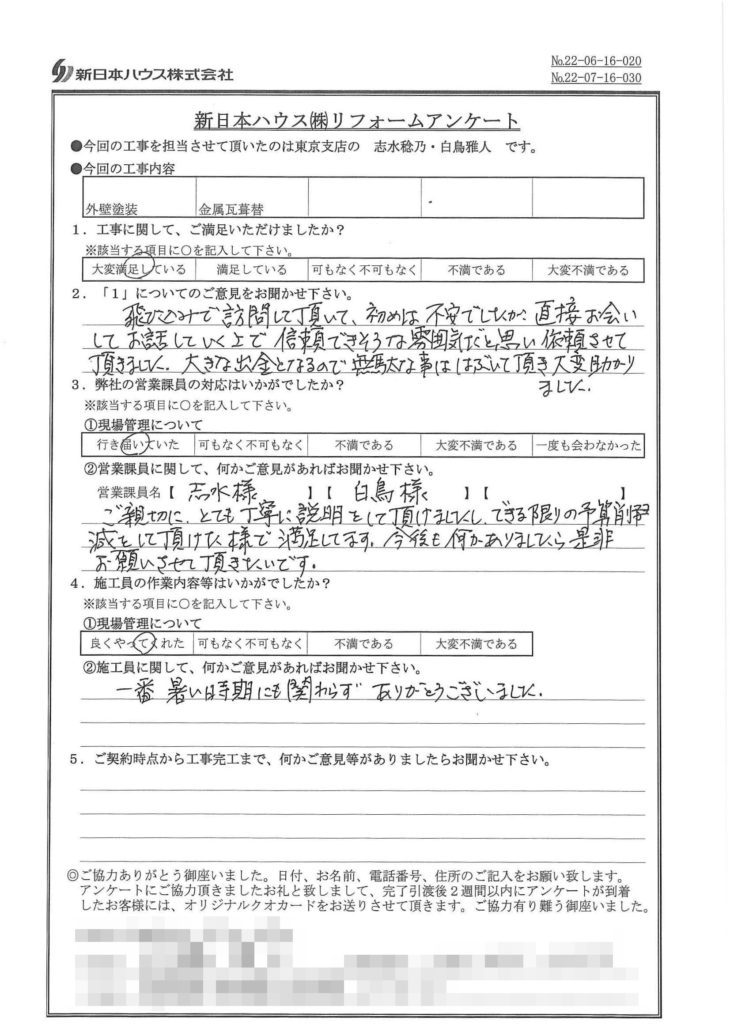 新日本ハウス株式会社
No.22-06-16-020
No.22-07-16-030
新日本ハウス㈱リフォームアンケート
●今回の工事を担当させて頂いたのは東京支店の 志水稔乃・白鳥雅人 です。
●今回の工事内容
外壁塗装 金属瓦葺替
1．工事に関して、ご満足いただけましたか？
※該当する項目に○を記入して下さい。
大変満足している 満足している 可もなく不可もなく 不満である 大変不満である
2．「1」についてのご意見をお聞かせ下さい。
飛び込みで訪問して頂いて、初めは不安でしたが、直接お会い
してお話していく上で信頼できそうな雰囲気だと思い依頼させて
頂きました。大きな出金となるので無駄な事ははぶいて頂き大変助かり
ました。
3．弊社の営業課員の対応はいかがでしたか？
※該当する項目に○を記入して下さい。
①現場管理について
行き届いていた 可もなく不可もなく 不満である 大変不満である 一度も会わなかった
②営業課員に関して、何かご意見があればお聞かせ下さい。
営業課員名【 志水様 】【 白鳥様 】【 】
ご親切に、とても丁寧に説明をして頂けましたし、できる限りの予算削
減をして頂けた様で満足してます。今後も何かありましたら是非
お願いさせて頂きたいです。
4．施工員の作業内容等はいかがでしたか？
※該当する項目に○を記入して下さい。
①現場管理について
良くやってくれた 可もなく不可もなく 不満である 大変不満である
②施工員に関して、何かご意見があればお聞かせ下さい。
一番暑い時期にも関わらずありがとうございました。
5．ご契約時点から工事完工まで、何かご意見等がありましたらお聞かせ下さい。
◎ご協力ありがとう御座いました。日付、お名前、電話番号、住所のご記入をお願い致します。
アンケートにご協力頂きましたお礼と致しまして、完了引渡後２週間以内にアンケートが到着
したお客様には、オリジナルクオカードをお送りさせて頂きます。ご協力有り難う御座いました。